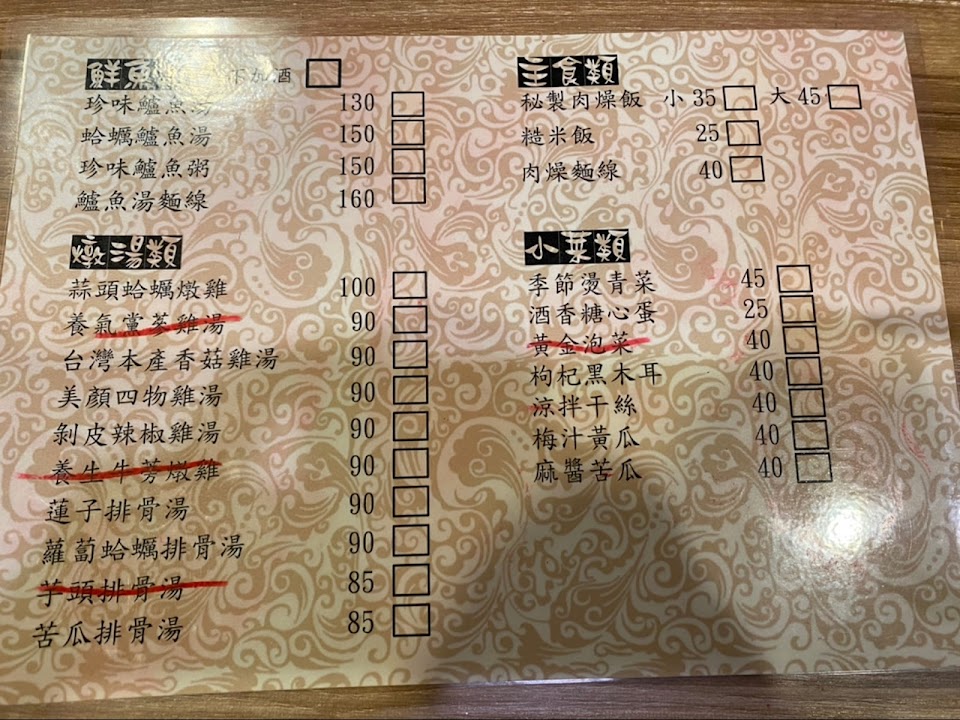 鮮魚 下加酒
珍味鱸魚湯 130
蛤蠣鱸魚湯 150
珍味鱸魚粥 150
鱸魚湯麵線 160
燉湯類
蒜頭蛤蠣燉雞 100
養氣黨蔘雞湯 90
台灣本產香菇雞湯 90
美顏四物雞湯 90
剝皮辣椒雞湯 90
養生牛蒡燉雞 90
蓮子排骨湯 90
蘿蔔蛤蠣排骨湯 90
芋頭排骨湯 85
苦瓜排骨湯 85
主食類
秘製肉燥飯 小35 大45
糙米飯 25
肉燥麵線 40
小菜類
季節燙青菜 45
酒香糖心蛋 25
黃金泡菜 40
枸杞黑木耳 40
涼拌干絲 40
梅汁黃瓜 40
麻醬苦瓜 40